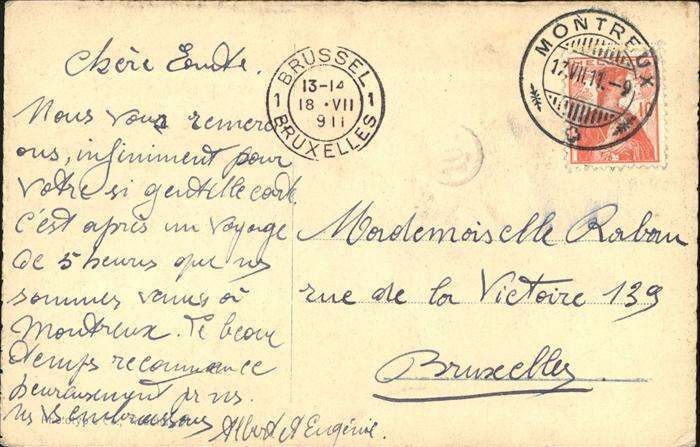 Chère Emite.
Nous vous remerci
ons, infiniment pour
votre si gentille carte
C'est après un voyage
de 5 heures que ns
sommes venus à
Montreux. Le beau
temps recommance
heureusement pr ns.
ns vs embrassons
Albert et Eugénie.
1 BRÜSSEL 1
13-14
18 · VII
911
BRUXELLES
MONTREUX
17.VII.11.-9
HELVETIA
Mademoiselle Rabau
rue de la Victoire 139
Bruxelles